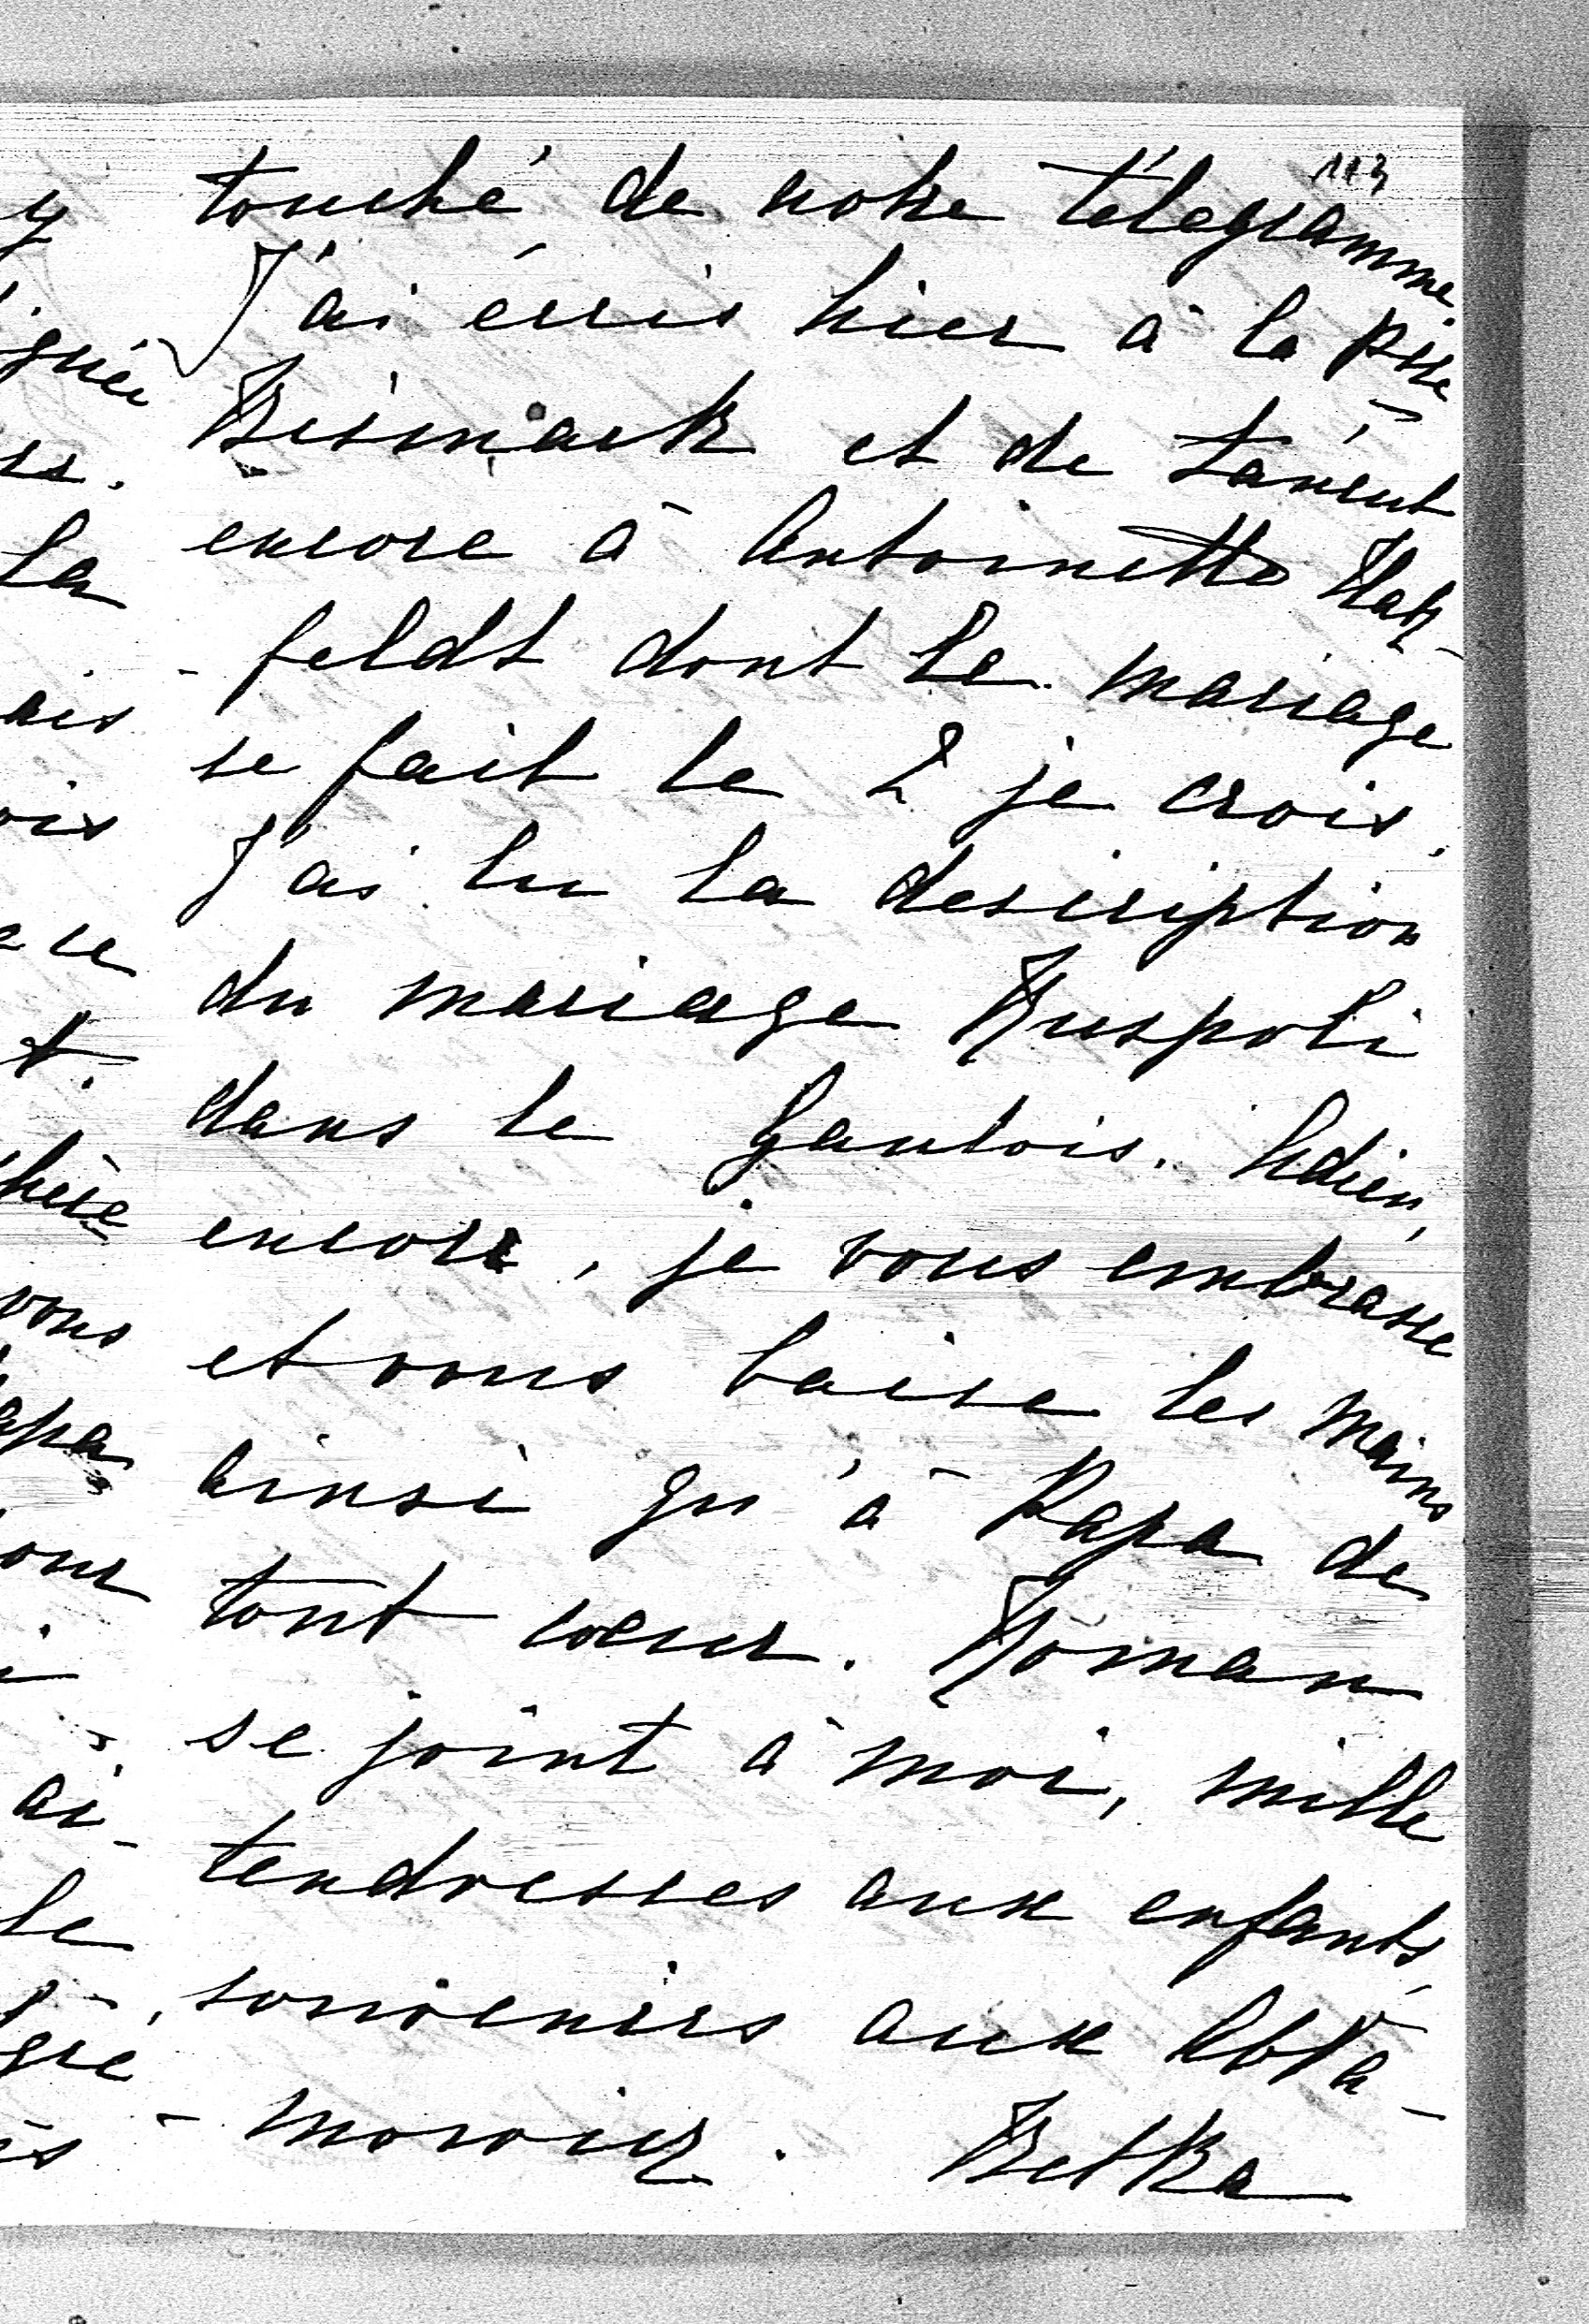 113
touché de notre télégramme.
J'ai écris hier à la Pcsse
Bismark et de Tarent
encore à Antoinette Hatz-
-feldt dont le mariage
se fait le 2 je crois.
J'ai lu la description
du mariage Ruspoli
dans le Gaulois. Adieu,
encore, je vous embrasse
et vous baise les mains
ainsi qu'à Papa de
tout cœur. Roman
se joint à moi, mille
tendresses aux enfants,
souvenirs aux Abra-
-mowicz. Betka